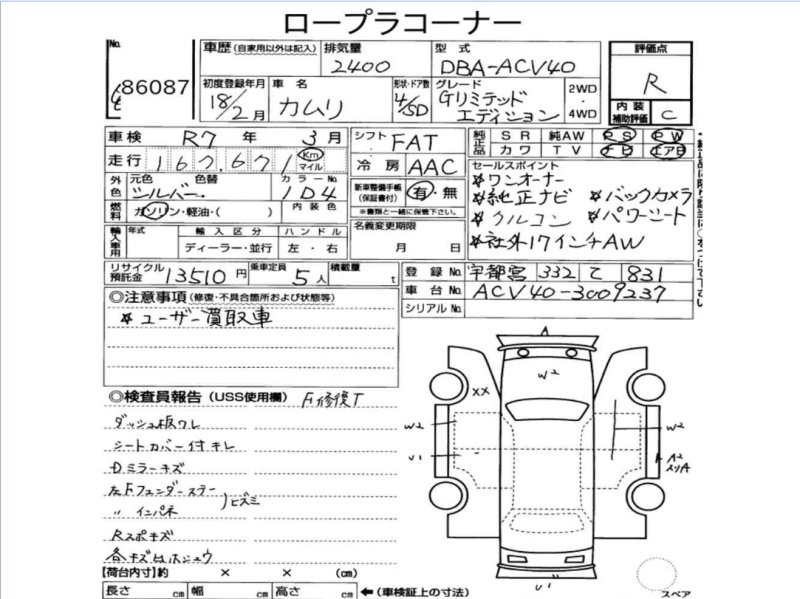 ロープラコーナー
No.
86087
車歴 (自家用以外は記入)
排気量
2400
型式
DBA-ACV40
評価点
R
内装補助評価
C
初度登録年月
18/2月
車名
カムリ
形状・ドア数
4/SD
グレード
Gリミテッド
エディション
2WD
・
4WD
車検 R7 年 3 月
走行 167,671 Km マイル
シフト FAT
冷房 AAC
純正品 SR 純AW PS PW
カワ TV ナビ エアB
外色
元色 色替
シルバー
カラーNo.
1D4
燃料 ガソリン・軽油・( )
内装色
新車整備手帳 (保証書付) 有・無
※書類と一緒に保管下さい。
セールスポイント
☆ワンオーナー
☆純正ナビ ☆バックカメラ
☆クルコン ☆パワーシート
☆社外17インチAW
輸入車用
年式
輸入区分
ディーラー・並行
ハンドル
左・右
名義変更期限
月 日
リサイクル預託金 13510 円
乗車定員 5 人
積載量 t
登録No. 宇都宮 332 て 831
車台No. ACV40-3009237
シリアルNo.
◎注意事項 (修復・不具合箇所および状態等)
☆ユーザー買取車
◎検査員報告 (USS使用欄) F修復T
ダッシュ板ワレ
シートカバー付キレ
Dミラーキズ
左Fフェンダーステー
〃 インパネ
)ヒズミ
Rスポキズ
各キズ
A
W2
XX
W2
W2
U1
A2
U1
スペア
【荷台内寸】約 × × (cm)
長さ cm 幅 cm 高さ cm ←(車検証上の寸法)